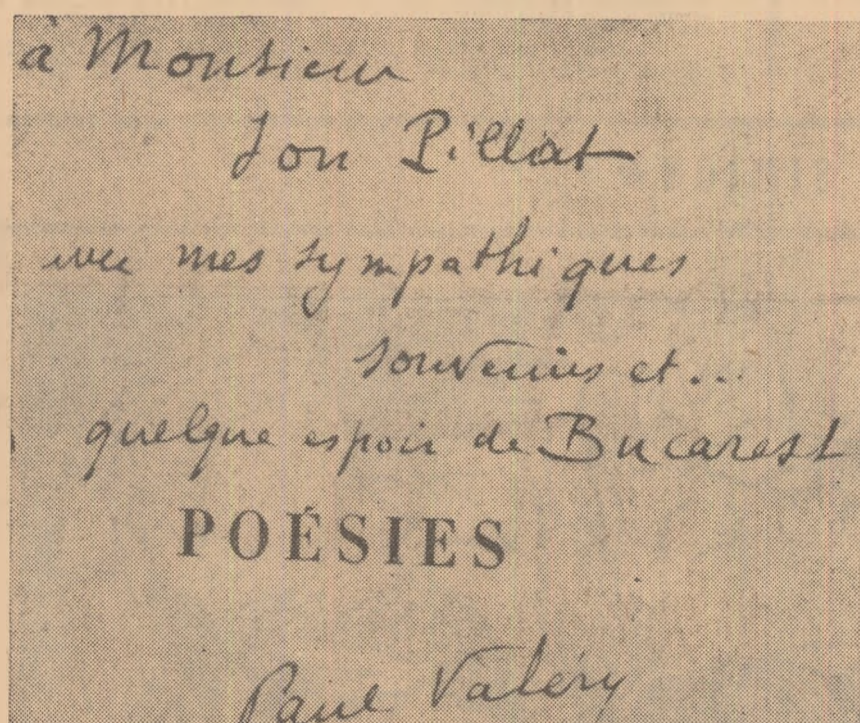 à Monsieur
Ion Pillat
avec mes sympathiques
souvenirs et...
quelque espoir de Bucarest
POÉSIES
Paul Valéry